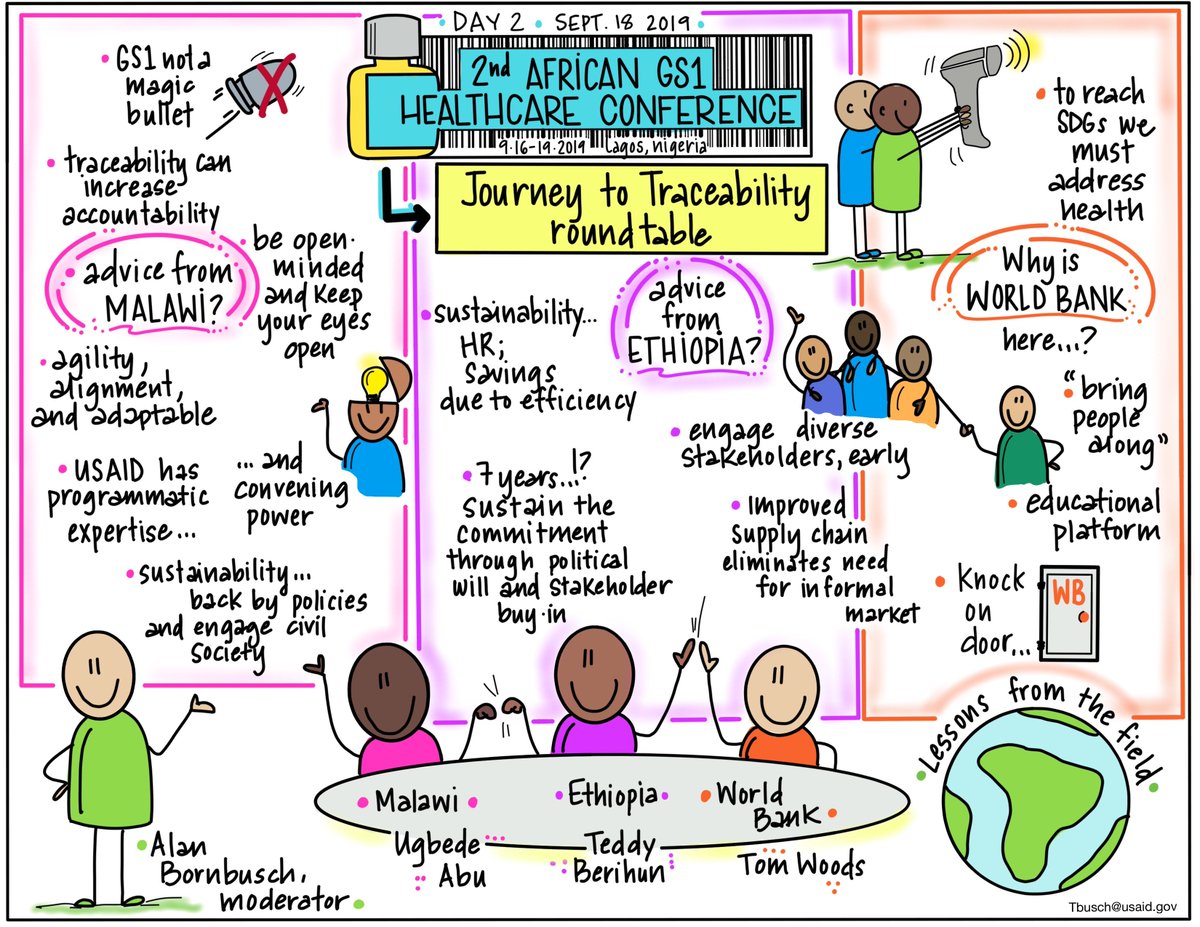 DAY 2 • SEPT. 18 2019 •
2nd AFRICAN GS1
HEALTHCARE CONFERENCE
9.16-19.2019 Lagos, Nigeria
Journey to Traceability
roundtable
• GS1 not a
magic
bullet
• traceability can
increase
accountability
• advice from
MALAWI?
• be open-
minded
and keep
your eyes
open
• agility,
alignment,
and adaptable
• USAID has
programmatic
expertise...
... and
convening
power
• sustainability...
back by policies
and engage civil
society
• sustainability...
HR;
savings
due to efficiency
advice
from
ETHIOPIA?
• engage diverse
stakeholders, early
• 7 years...!?
sustain the
commitment
through political
will and stakeholder
buy-in
• Improved
supply chain
eliminates need
for informal
market
• to reach
SDGs we
must
address
health
Why is
WORLD BANK
here...?
• "bring
people
along"
• educational
platform
• Knock
on
door...
WB
• Lessons from the field •
• Malawi •
Ugbede
Abu
• Ethiopia •
Teddy
Berihun
• World
Bank •
Tom Woods
• Alan
Bornbusch,
moderator •
Tbusch@usaid.gov